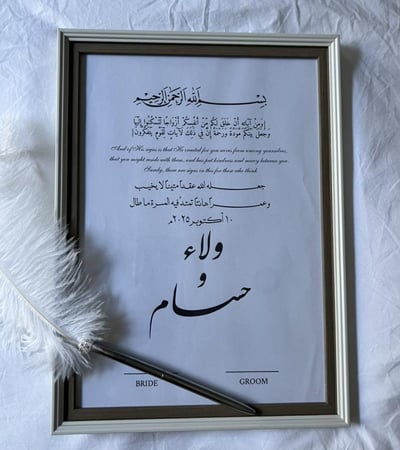 بسم الله الرحمن الرحيم
﴿ومن آياته أن خلق لكم من أنفسكم أزواجا لتسكنوا إليها
وجعل بينكم مودة ورحمة إن في ذلك لآيات لقوم يتفكرون﴾
And of His signs is that He created for you wives from among yourselves,
that you might reside with them, and has put kindness and mercy between you.
Surely, there are signs in this for those who think.
جعله الله عقداً متيناً لا يخيب
وعمراً هانئاً تمتد فيه المسرة ما طال
١٠ أكتوبر ٢٠٢٥م
ولاء
و
حسام
BRIDE GROOM